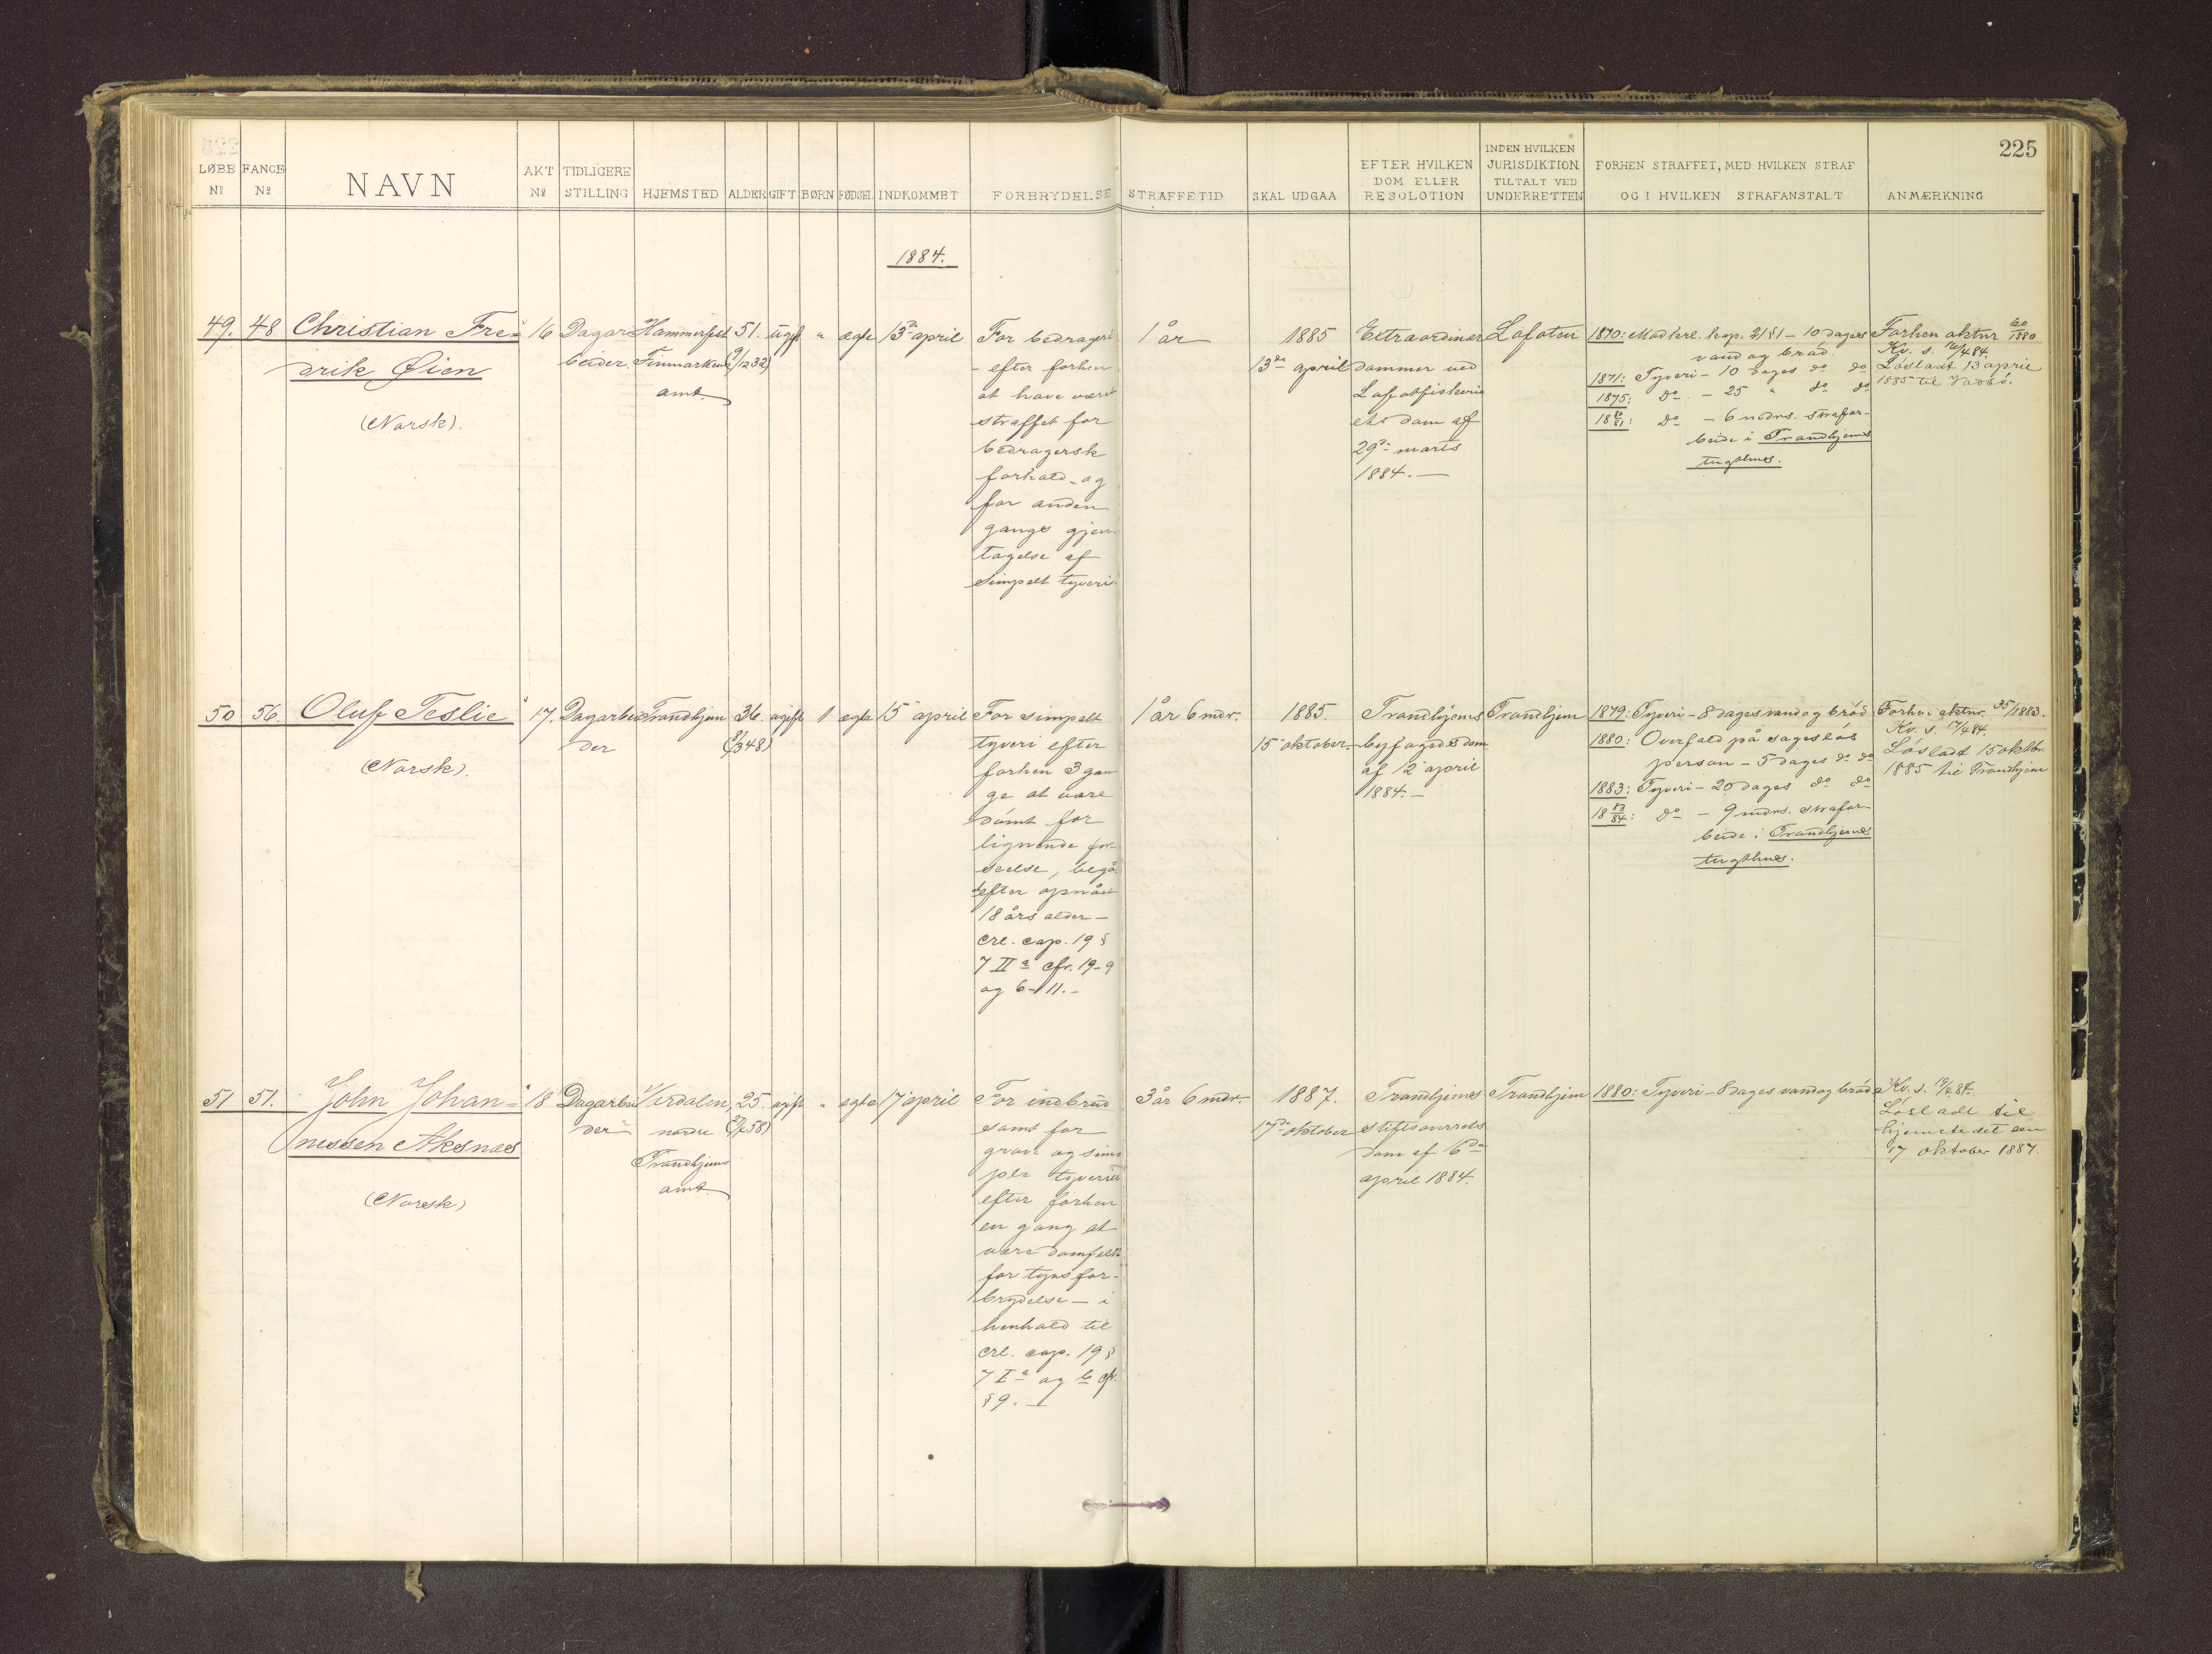 225
LØBE No
FANGE No
NAVN
AKT No
TIDLIGERE STILLING
HJEMSTED
ALDER
GIFT
BØRN
FØDSEL
INDKOMMET
FORBRYDELSE
STRAFFETID
SKAL UDGAA
EFTER HVILKEN DOM ELLER RESOLOTION
INDEN HVILKEN JURISDIKTION TILTALT VED UNDERRETTEN
FORHEN STRAFFET, MED HVILKEN STRAF OG I HVILKEN STRAFANSTALT
ANMÆRKNING
1884.
49.
48
Christian Fre=
drik Øien
(Norsk).
16
Dagar
beider
Hammerfest
Finmarkens
amt.
51.
(9/12 32)
ugift
"
ægte
13de april
For bedrageri
- efter forhen
at have været
straffet for
bedragersk
forhold - og
for anden
gangs gjen-
tagelse af
simpelt tyveri.
1 år
1885
13de april
Extraordinær
dommer ved
Lofotfiskeri
ets dom af
29de marts
1884. —
Lofoten
1870: Mod krl. kap. 21 § 1 - 10 dages
vand og brød.
1871: Tyveri - 10 dages do do
1875: do - 25 " do do
18 80/81: do - 6 mdrs. strafar-
beide i Trondhjems
tugthus.
Forhen aktnr 60/1880
Kv. s. 16/4 84.
Løsladt 13 april
1885 til Vadsø.
50
56.
Oluf Teslie
(Norsk).
17.
Dagarbei
der
Trondhjem
36.
(8/3 48)
ugift
1
ægte
15 april
For simpelt
tyveri efter
forhen 3 gan
ge at være
dømt for
lignende for-
seelse, begå
efter opnået
18 års alder —
crl. cap. 19 §
7 II a cfr. 19-9
og 6-11. -
1 år 6 mdr.
1885.
15 oktober.
Trondhjems
byfogeds dom
af 12 april
1884. —
Trondhjem
1879: Tyveri - 8 dages vand og brød
1880: Overfald på sagesløs
person - 5 dages do do
1883: Tyveri - 20 dages do do
18 83/84: do - 9 mdrs. strafar-
beide i Trondhjems
tugthus.
Forhen aktnr. 35/1883.
Kv. s. 17/4 84.
Løsladt 15 oktbr.
1885 til Trondhjem
51
51.
John Johan=
nessen Aksnæs
(Norsk)
18
Dagarbei
der
Værdalen,
nordre
Trondhjems
amt.
25.
ugift
"
ægte
17 april
For indbrud
samt for
grove og sim
ple tyverier
efter forhen
en gang at
være domfældt
for tyvsfor-
brydelse — i
henhold til
crl. cap. 19 §
7 I a og b cfr.
§ 9. —
3 år 6 mdr.
1887.
17de oktober
Trondhjems
stiftsoverrets
dom af 16de
april 1884.
Trondhjem
1880: Tyveri - 8 dages vand og brød
Kv. s. 19/4 84.
Løsladt til
hjemstedet den
17 oktober 1887.